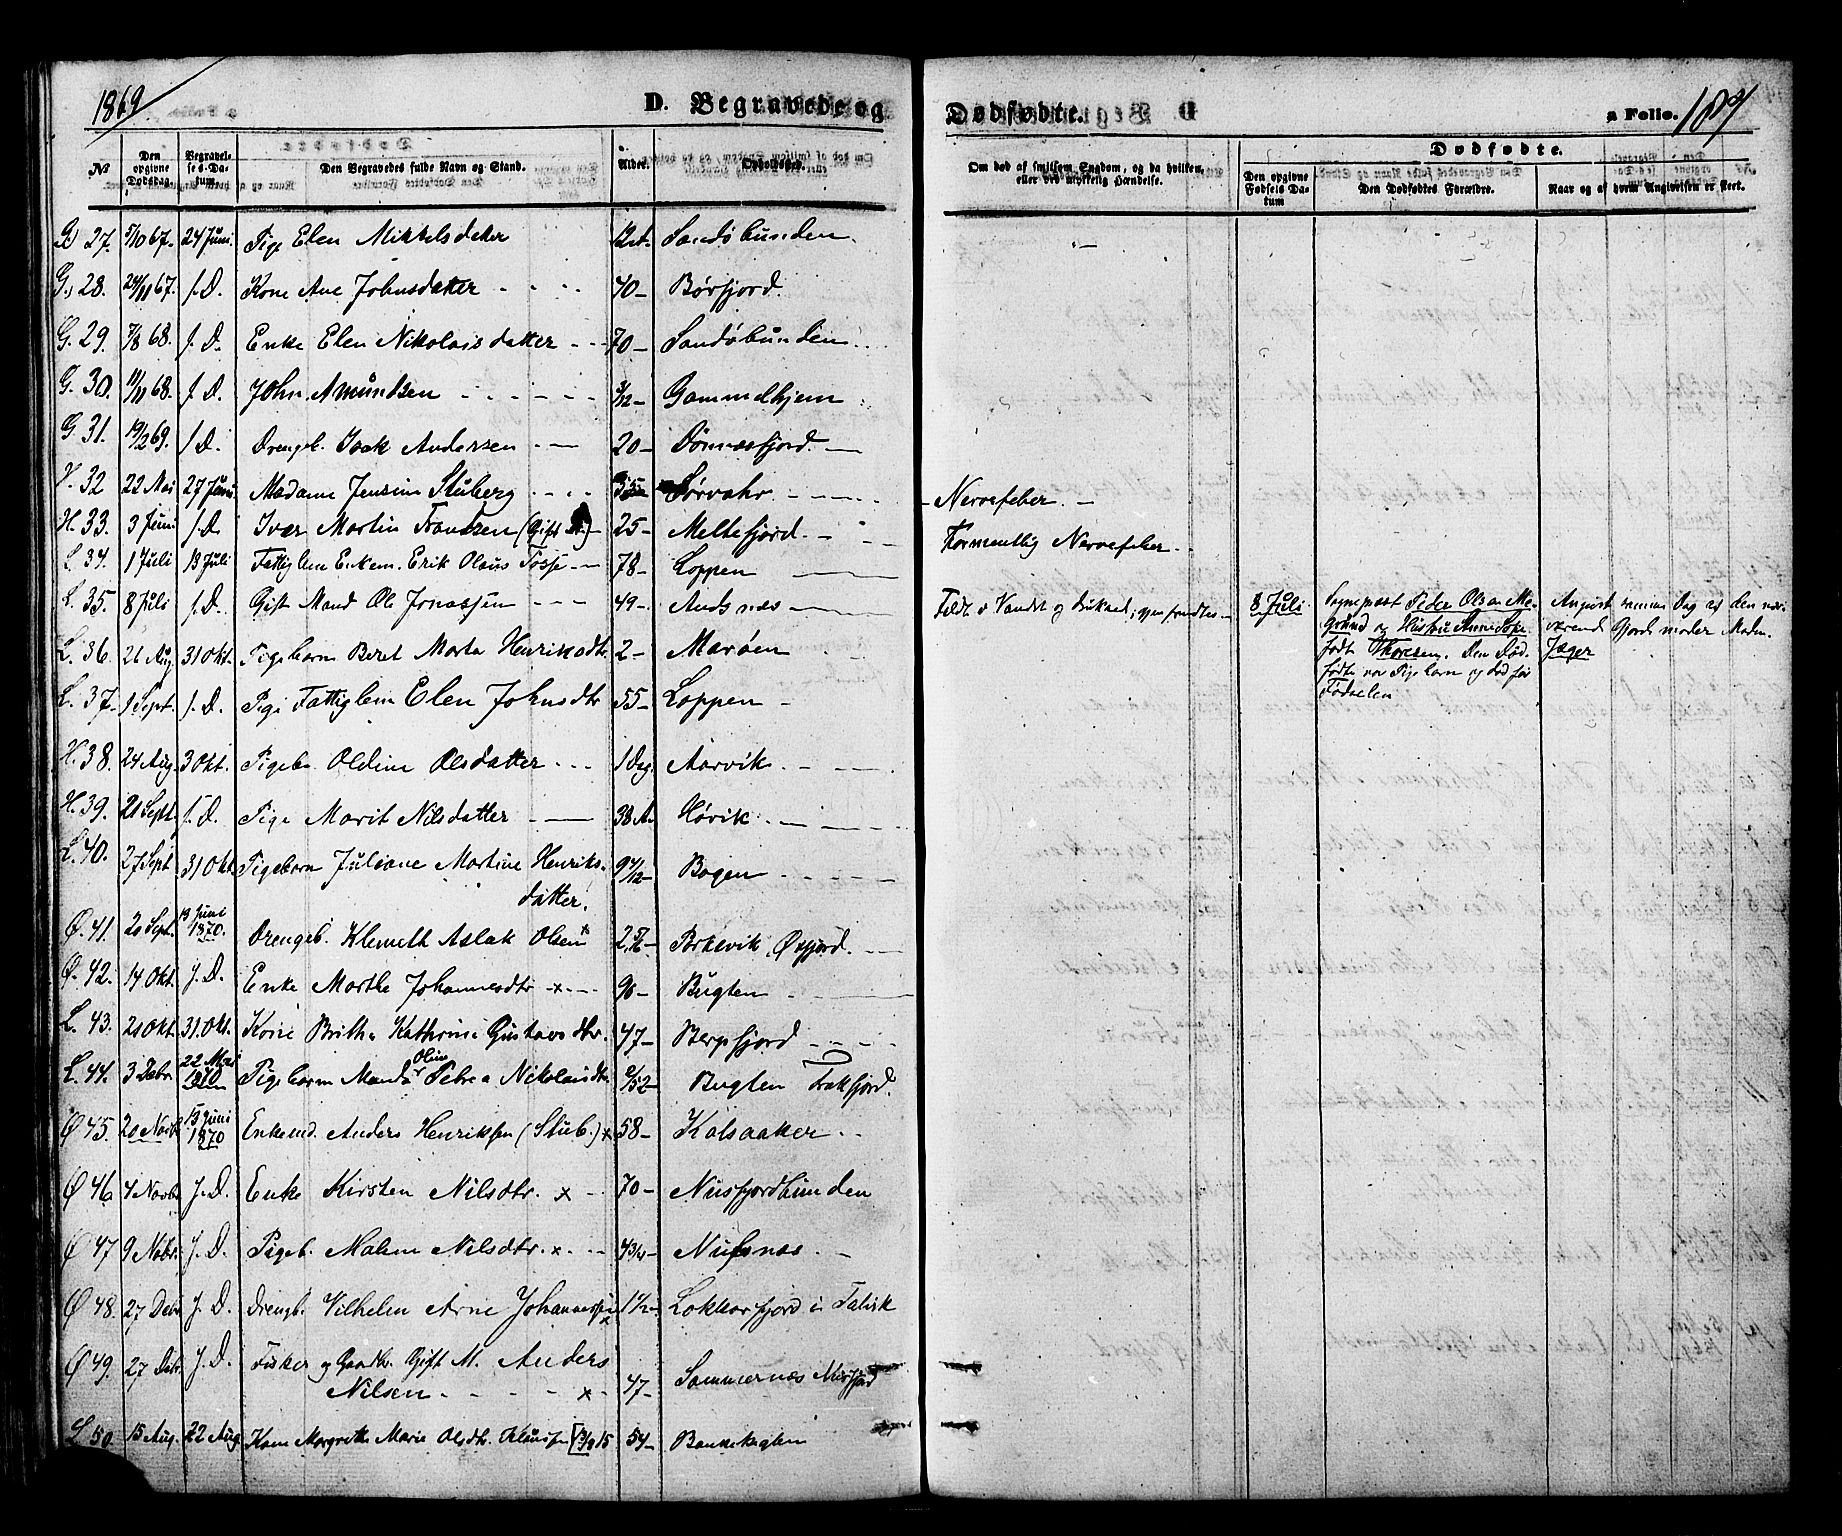 1869.
D. Begravede og
Dødfødte.
a Folio.
No
Den opgivne Dødsdag.
Begravelses-Datum.
Den Begravedes fulde Navn og Stand.
Alder.
Opholdssted.
Om død af smitsom Sygdom, og da hvilken, eller ved ulykkelig Hændelse.
Dødfødte.
Den opgivne Fødsels Datum
Den Dødfødtes Forældre.
Naar og af hvem Angivelsen er skeet.
G 27. 5/10 67. 24 Juni. Pige Elen Mikkelsdatter Sandøbunden.
G. 28. 24/11 67. s. D. Kone Ane Johnsdatter 40 Børfjord.
G. 29. 7/8 68. s. D. Enke Elen Nikolaisdatter 70 Sandøbunden
G. 30. 11/11 68. s. D. John Amundsen 3/12 Gammelhjem
G. 31. 19/2 69. s. D. Drengeb. Isak Andersen 20 Dønnesfjord.
H. 32 22 Mai 27 Juni Madame Jensine Stuberg Sørvahr Nervefeber.
H. 33. 3 Juni s. D. Ivar Martin Frantzen (Gift M.) 25 Meltefjord. Formentlig Nervefeber.
L. 34. 1 Juli 13 Juli Fattiglem Enkem. Erik Olaus Fosse 78 Loppen
L. 35. 8 Juli s. D. Gift Mand Ole Jonassen 49 Andsnæs Faldt i Vandet og druknede, igjen fundet
8 Juli. Sognepræst Peder Olsen Me-
grund og Hustru Anne Sofie
født Thoresen. Den Død-
fødte var Pigebarn og død før
Fødselen
Angivet samme Dag af den nær-
værende Gjordemoder Madm.
Jæger
L. 36. 26 Aug 31 Okt. Pigebarn Beret Marta Henriksdtr. 2 Marøen
L. 37. 1 Sept. s. D. Pige Fattiglem Elen Johnsdtr 55 Loppen
H. 38. 24 Aug. 3 Okt. Pigeb. Oldine Olsdatter 1 Dag. Aarvik.
H. 39. 21 Sept. s. D. Pige Marit Nilsdatter 38 A. Høvik.
L. 40. 27 Sept 31 Okt. Pigebarn Juliane Martine Henriks-
datter. 9 4/12 Bogen
Ø. 41. 20 Sept. 13 Juni 1870. Drengeb. Klemeth Aslak Olsen x Øxfjord.
Ø. 42. 14 Okt. s. D. Enke Marthe Johannesdtr x 96 Bugten
L. 43. 20 Okt. 31. Okt. Kone Britha Kathrine Gustavsdtr. 47 Bergsfjord
L. 44. 3 Debr. 22 Mai 1870 Pigebarn Manda Oline Petrea Nikolaidtr 2/52 Bugten Frakfjord.
Ø 45. 20 Novb. 13 Juni 1870 Enkemd. Anders Henriksen (Stub.) x 58 Kolsaaker
Ø 46 4 Novbr. s. D. Enke Kirsten Nilsdtr. x 70 Nusfjordbunden
Ø 47 9 Nobr. s. D. Pigeb. Malene Nilsdtr. x 4 3/12 Nusnæs.
Ø 48. 27 Debr s. D. Drengb. Vilhelm Arne Johannessen x 1 1/2 Lokkarfjord i Talvik
Ø 49. 27 Debr. s. D. Fisker og Gaardbr. Gift M. Anders
Nilsen x 47 Sommernæs Nusfjord
L 50. 15 Aug. 22 Aug Kone Margrethe Marie Olsdtr. Klausen 54 Bankekeglen